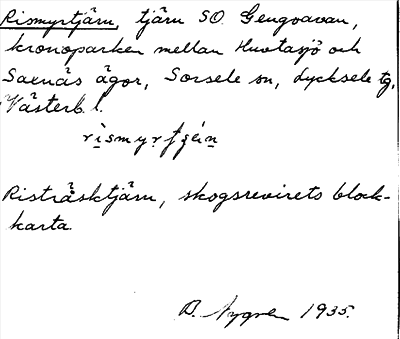 Rismyrtjärn, tjärn SO. Gengvavan,
kronoparken mellan Huvtasjö och
Saxnäs ägor, Sorsele sn, Lycksele tg,
Västerb. l.
Risträsktjärn, skogsrevirets block-
karta.
B. Nygren 1935.